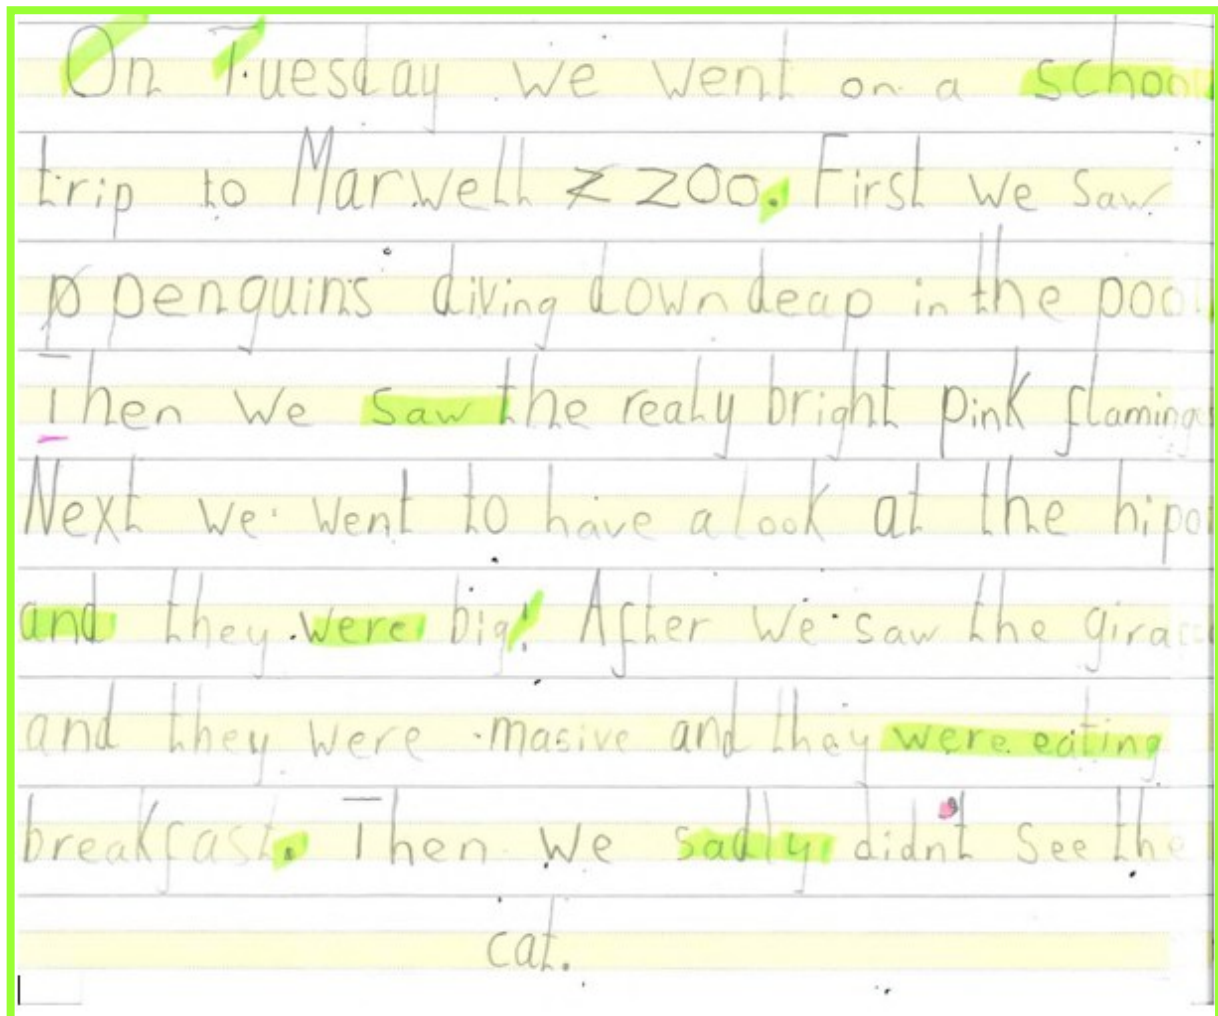 On Tuesday we went on a school
trip to Marwell zoo. First we saw
penguins diving down deap in the pool
Then we saw the realy bright pink flamingos
Next we went to have a look at the
and they were big! After we saw the
and they were masive and they were eating
breakfast. Then we sadly didn't see the
cat.